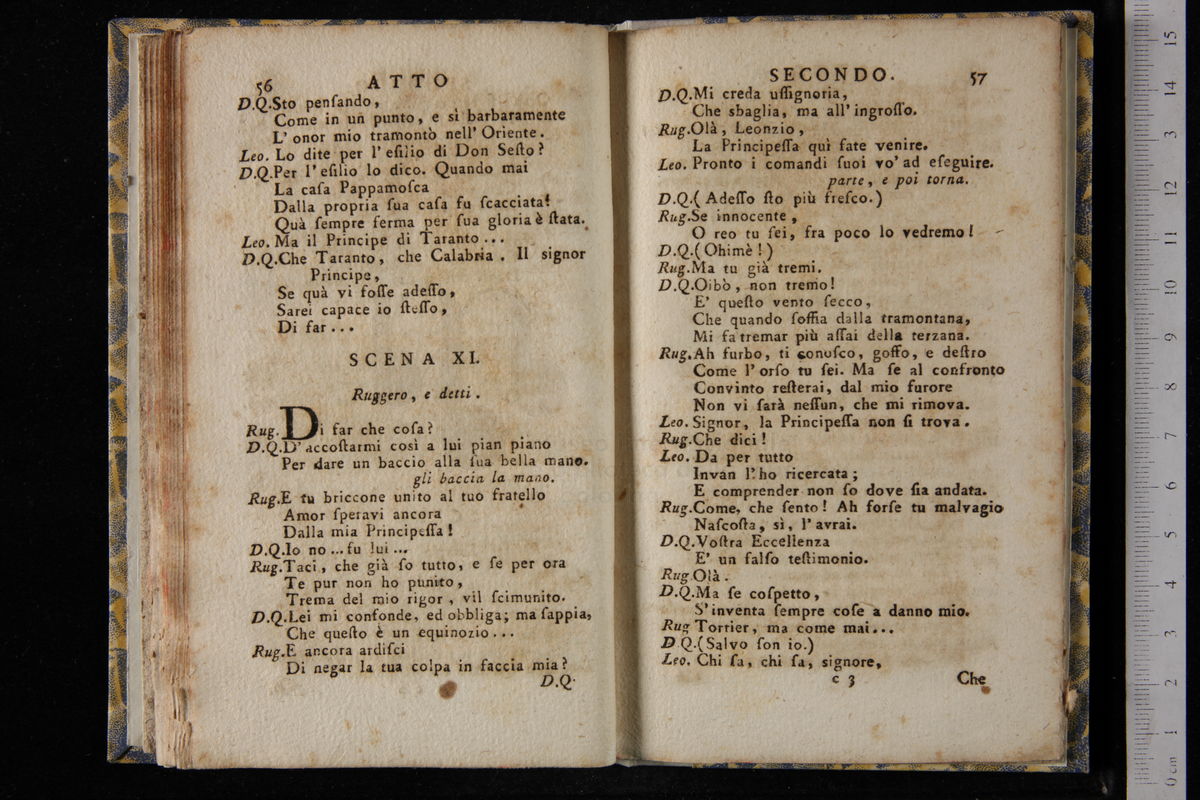 56 ATTO
D.Q.Sto penſando,
Come in un punto, e sì barbaramente
L' onor mio tramontò nell' Oriente.
Leo. Lo dite per l' eſilio di Don Seſto?
D.Q.Per l' eſilio lo dico. Quando mai
La caſa Pappamoſca
Dalla propria ſua caſa fu ſcacciata!
Quà ſempre ferma per ſua gloria è ſtata.
Leo. Ma il Principe di Taranto ...
D.Q.Che Taranto, che Calabria . Il signor
Principe,
Se quà vi foſſe adeſſo,
Sarei capace io ſteſſo,
Di far ...
SCENA XI.
Ruggero, e detti.
Rug. Di far che coſa?
D.Q.D' accoſtarmi così a lui pian piano
Per dare un baccio alla ſua bella mano.
gli baccia la mano.
Rug.E tu briccone unito al tuo fratello
Amor ſperavi ancora
Dalla mia Principeſſa!
D.Q.Io no ... fu lui ...
Rug.Taci, che già ſo tutto, e ſe per ora
Te pur non ho punito,
Trema del mio rigor, vil ſcimunito.
D.Q.Lei mi confonde, ed obbliga; ma ſappia,
Che queſto è un equinozio ...
Rug.E ancora ardiſci
Di negar la tua colpa in faccia mia?
D.Q.
SECONDO. 57
D.Q.Mi creda uſſignoria,
Che sbaglia, ma all' ingroſſo.
Rug.Olà, Leonzio,
La Principeſſa quì fate venire.
Leo. Pronto i comandi ſuoi vo' ad eſeguire.
parte, e poi torna.
D.Q.( Adeſſo ſto più freſco.)
Rug.Se innocente,
O reo tu ſei, fra poco lo vedremo!
D.Q.( Ohimè!)
Rug.Ma tu già tremi.
D.Q.Oibò, non tremo!
E' queſto vento ſecco,
Che quando ſoffia dalla tramontana,
Mi fa tremar più aſſai della terzana.
Rug.Ah furbo, ti conoſco, goffo, e deſtro
Come l' orſo tu ſei. Ma ſe al confronto
Convinto reſterai, dal mio furore
Non vi ſarà neſſun, che mi rimova.
Leo. Signor, la Principeſſa non ſi trova.
Rug.Che dici!
Leo. Da per tutto
Invan l' ho ricercata;
E comprender non ſo dove ſia andata.
Rug.Come, che ſento! Ah forſe tu malvagio
Naſcoſta, sì, l' avrai.
D.Q.Voſtra Eccellenza
E' un falſo teſtimonio.
Rug.Olà.
D.Q.Ma ſe coſpetto,
S' inventa ſempre coſe a danno mio.
Rug Torrier, ma come mai...
D.Q.(Salvo ſon io.)
Leo. Chi ſa, chi ſa, signore,
c 3 Che
0 cm 1 2 3 4 5 6 7 8 9 10 11 12 13 14 15